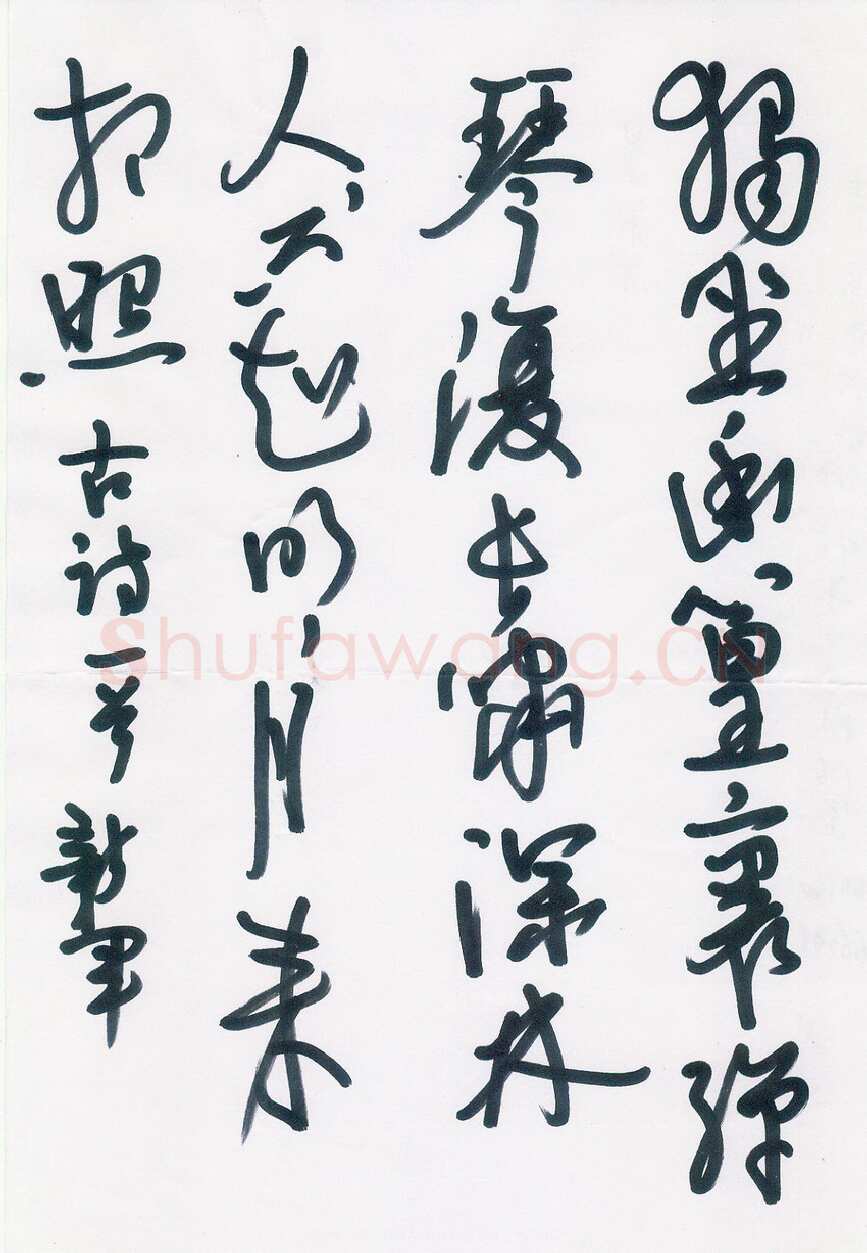 獨坐幽篁裏彈
琴復長嘯深林
人不起明月来
相照 古诗一首 新军
Shufawang.CN